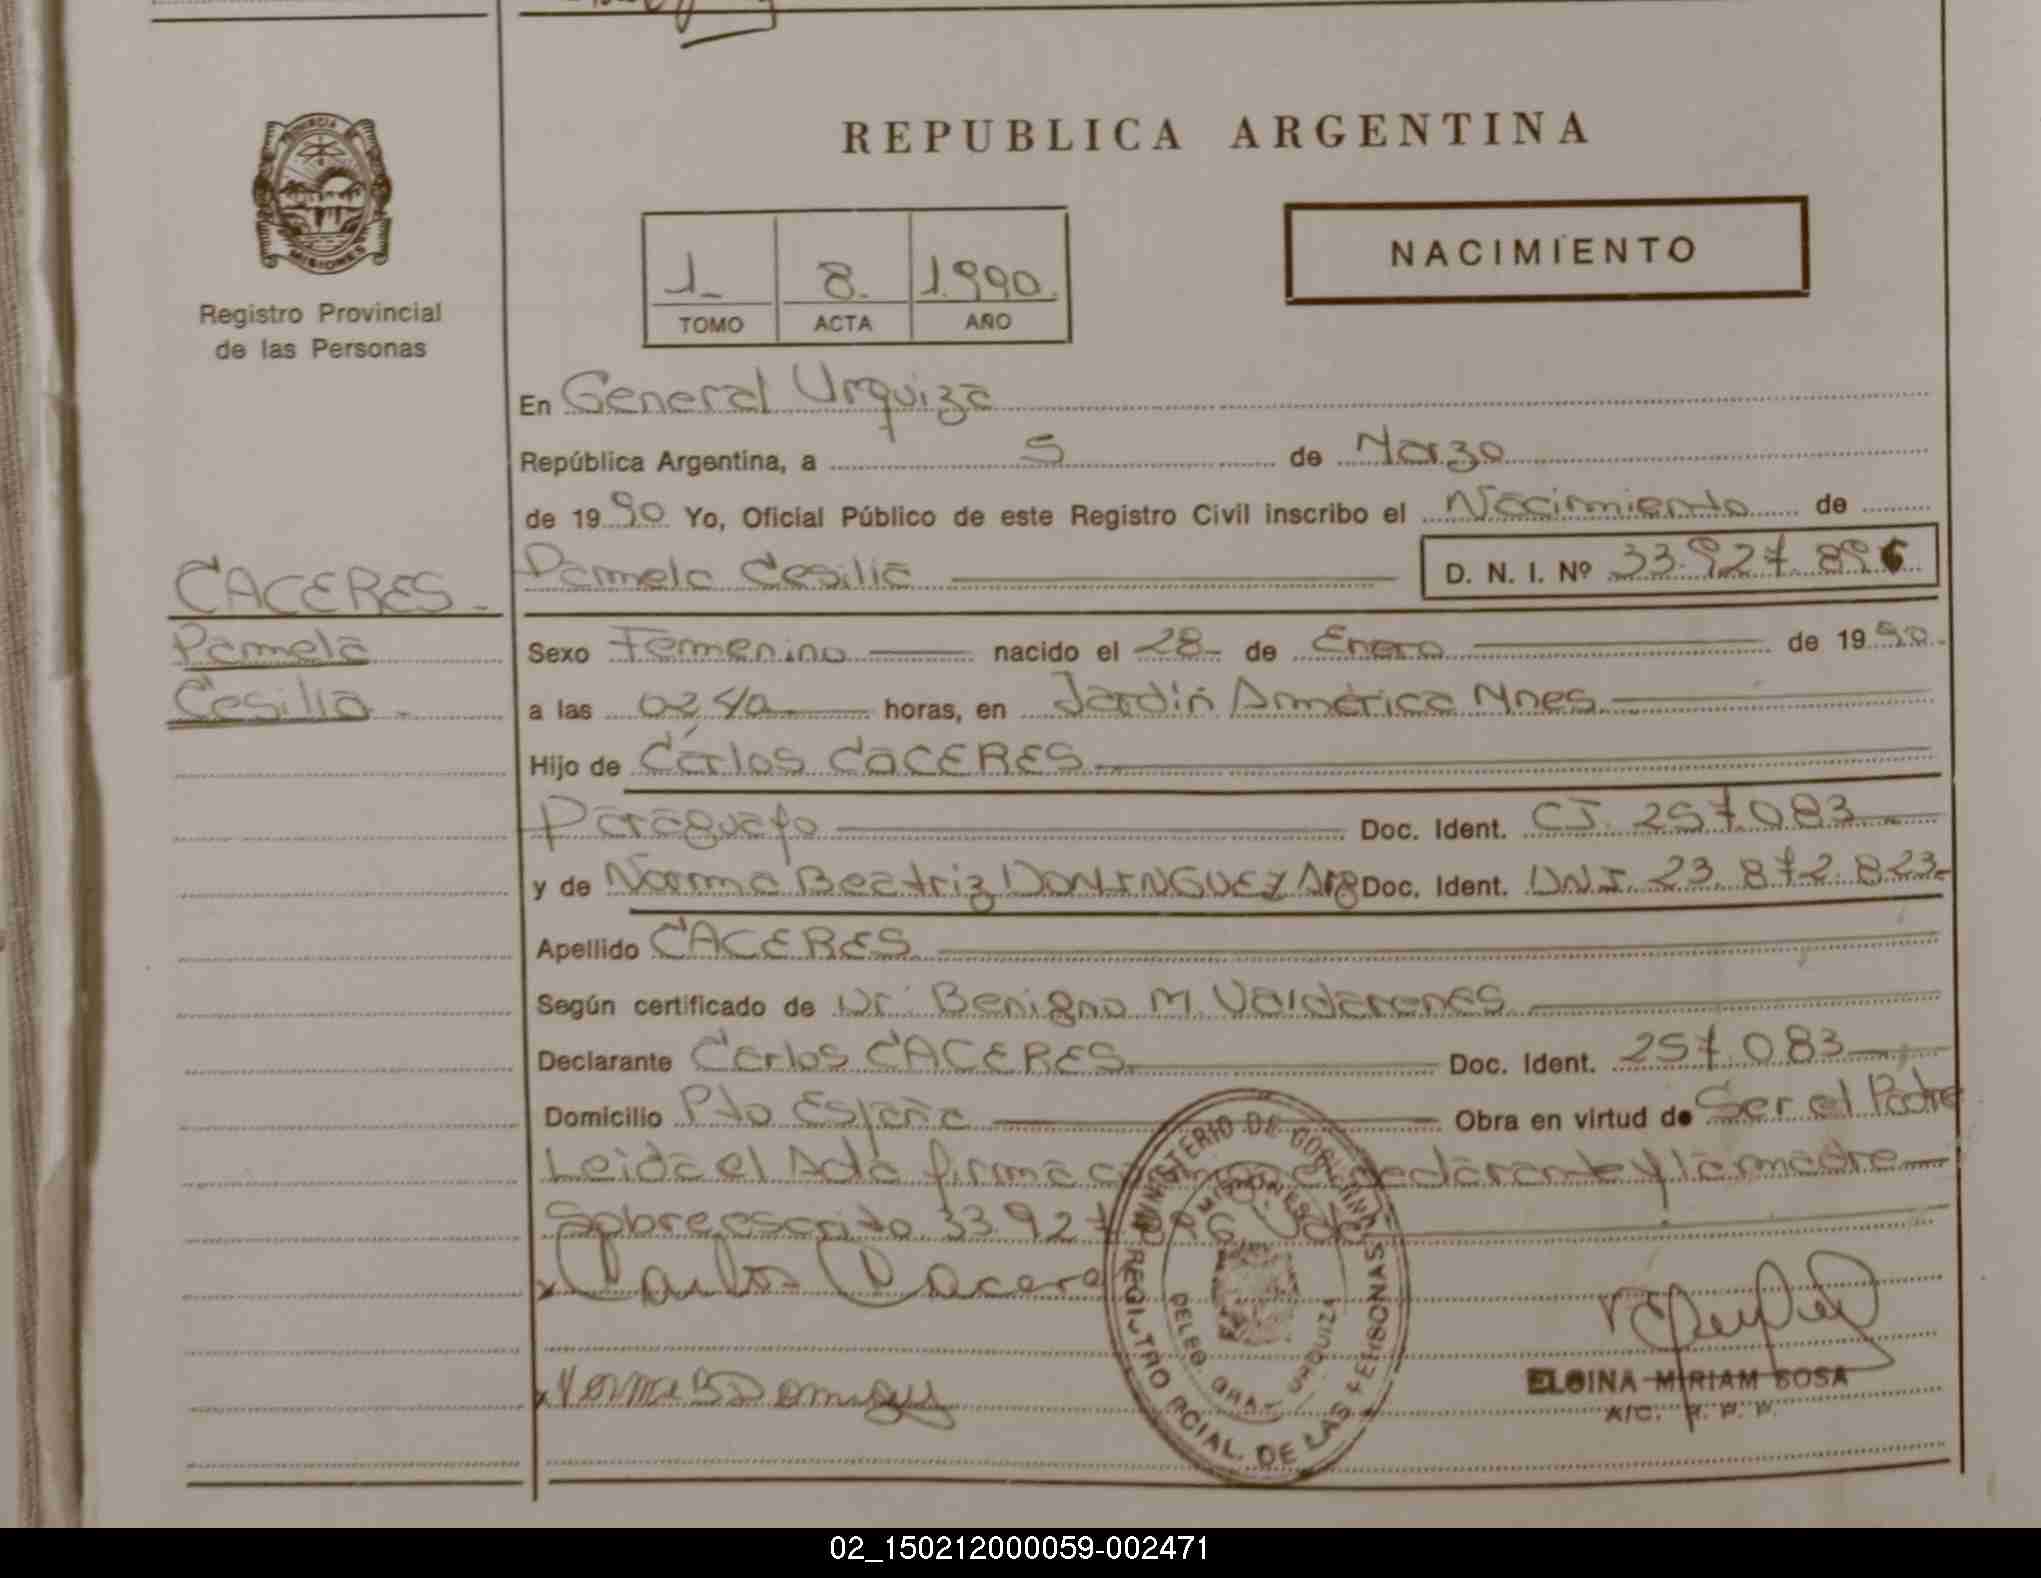 REPUBLICA ARGENTINA
PROVINCIA DE
MISIONES
Registro Provincial
de las Personas
1 8. 1.990.
TOMO ACTA AÑO
NACIMIENTO
En General Urquiza
República Argentina, a 5 de Marzo
de 1990 Yo, Oficial Público de este Registro Civil inscribo el Nacimiento de
Pamela Cesilia D. N. I. Nº 33.927.896
CACERES.-
Pamela
Cesilia.-
Sexo Femenino nacido el 28 de Enero de 1990.
a las 02 40 horas, en Jardín América Mnes
Hijo de Carlos CACERES
Paraguayo Doc. Ident. CI. 257.083
y de Norma Beatriz DOMINGUEZ Arg Doc. Ident. DNI. 23.872.823-
Apellido CACERES
Según certificado de Dr. Benigno M.
Declarante Carlos CACERES Doc. Ident. 257.083
Domicilio Pto España Obra en virtud de Ser el Padre
Leida el Acta firma declarante y la madre
Sobreescrito 33.927.896. Vale
x Carlos Cacere
x Norma B Domingu
MINISTERIO DE GOBIERNO
MISIONES
REGISTRO PCIAL. DE LAS PERSONAS
DELEG. GRAL. URQUIZA
ELGINA MIRIAM SOSA
A/C. R. P. P.
02_150212000059-002471